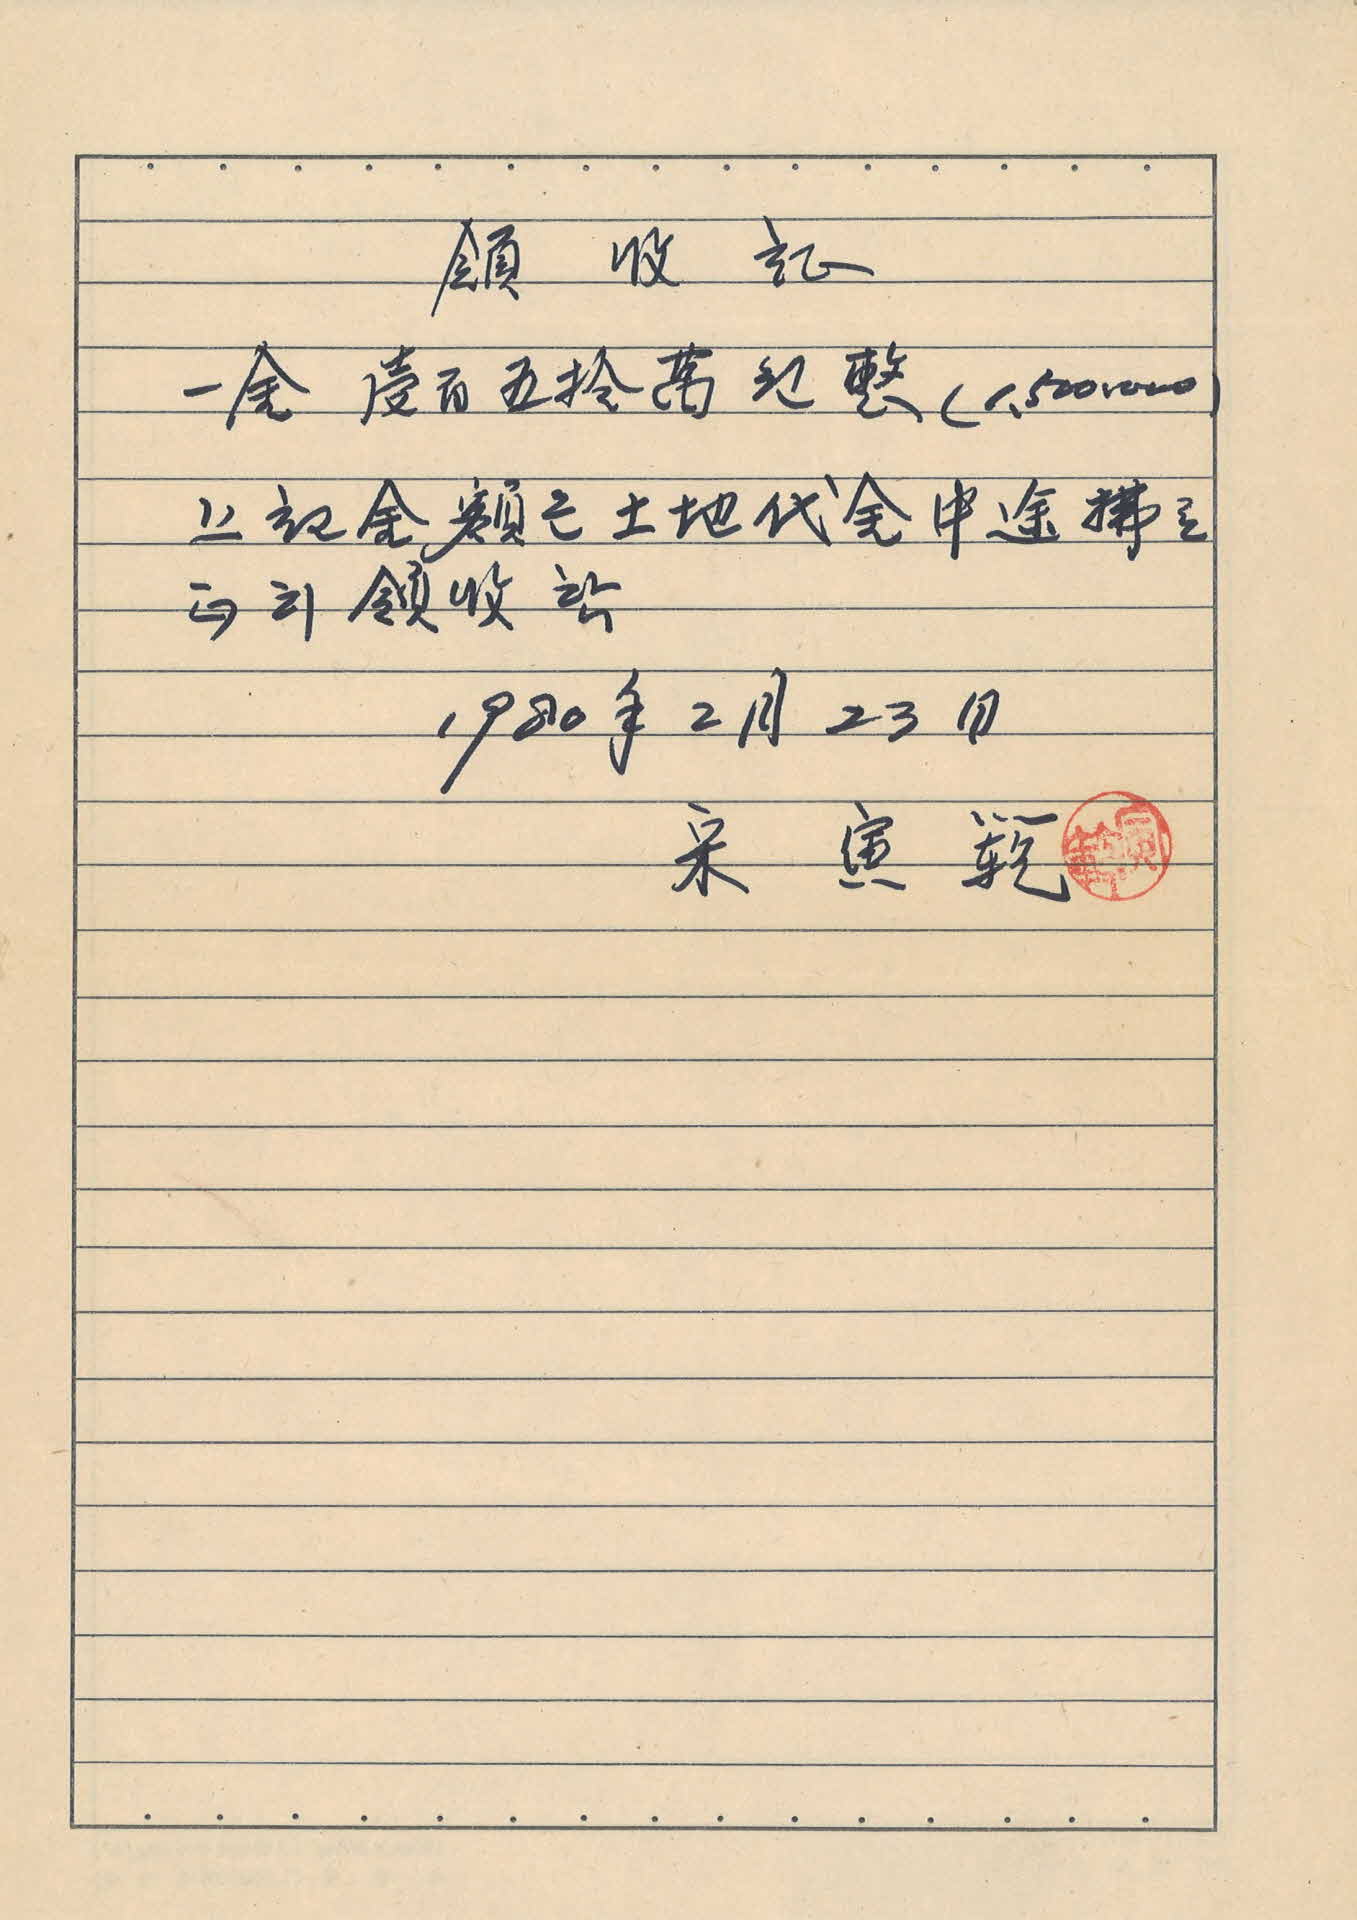 領收証
一金 壹百五拾萬원整 (1,500,000)
上記金額은 土地代金中途拂로
正히 領收함
1980年 2月 23日
宋寅範